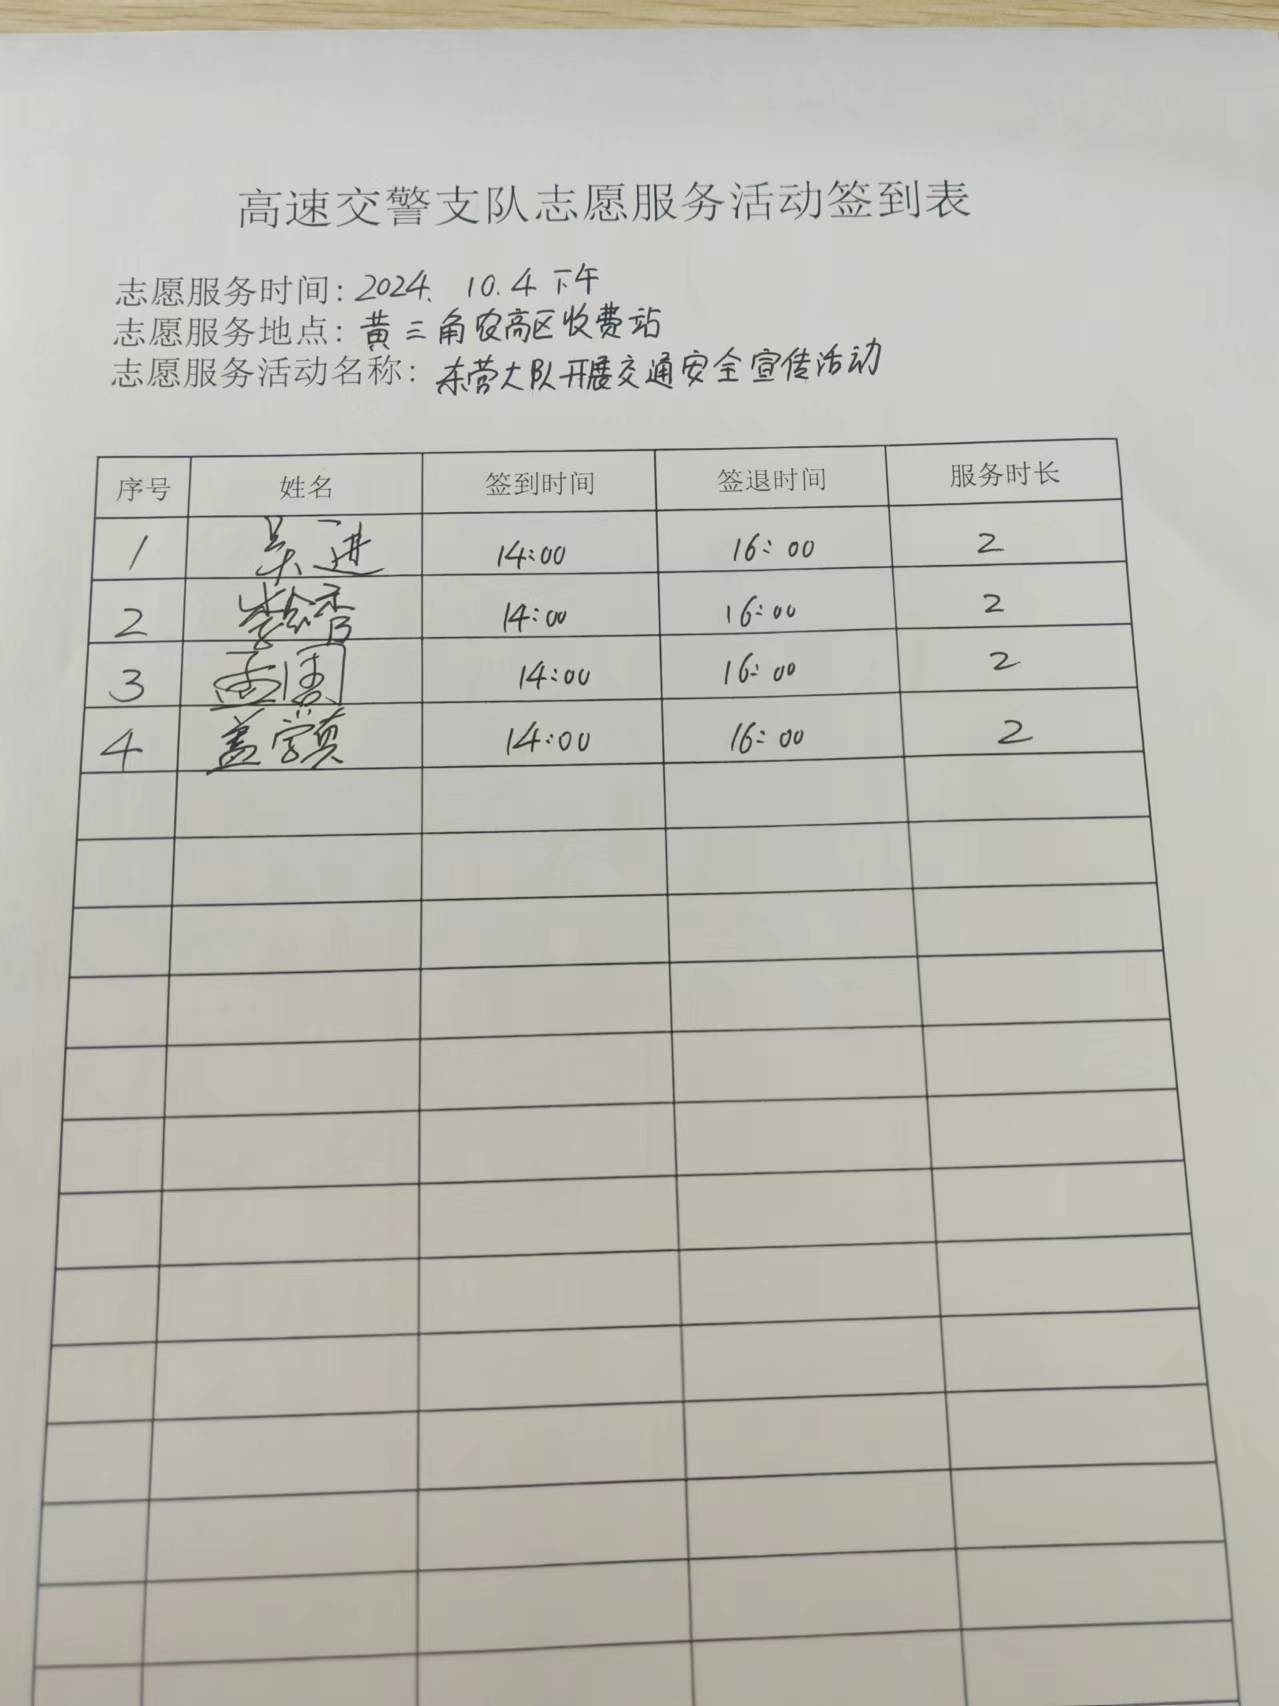 高速交警支队志愿服务活动签到表
志愿服务时间：2024. 10.4 下午
志愿服务地点：黄三角农高区收费站
志愿服务活动名称：东营大队开展交通安全宣传活动
序号 姓名 签到时间 签退时间 服务时长
1 吴进 14:00 16:00 2
2 14:00 16:00 2
3 14:00 16:00 2
4 盖学真 14:00 16:00 2